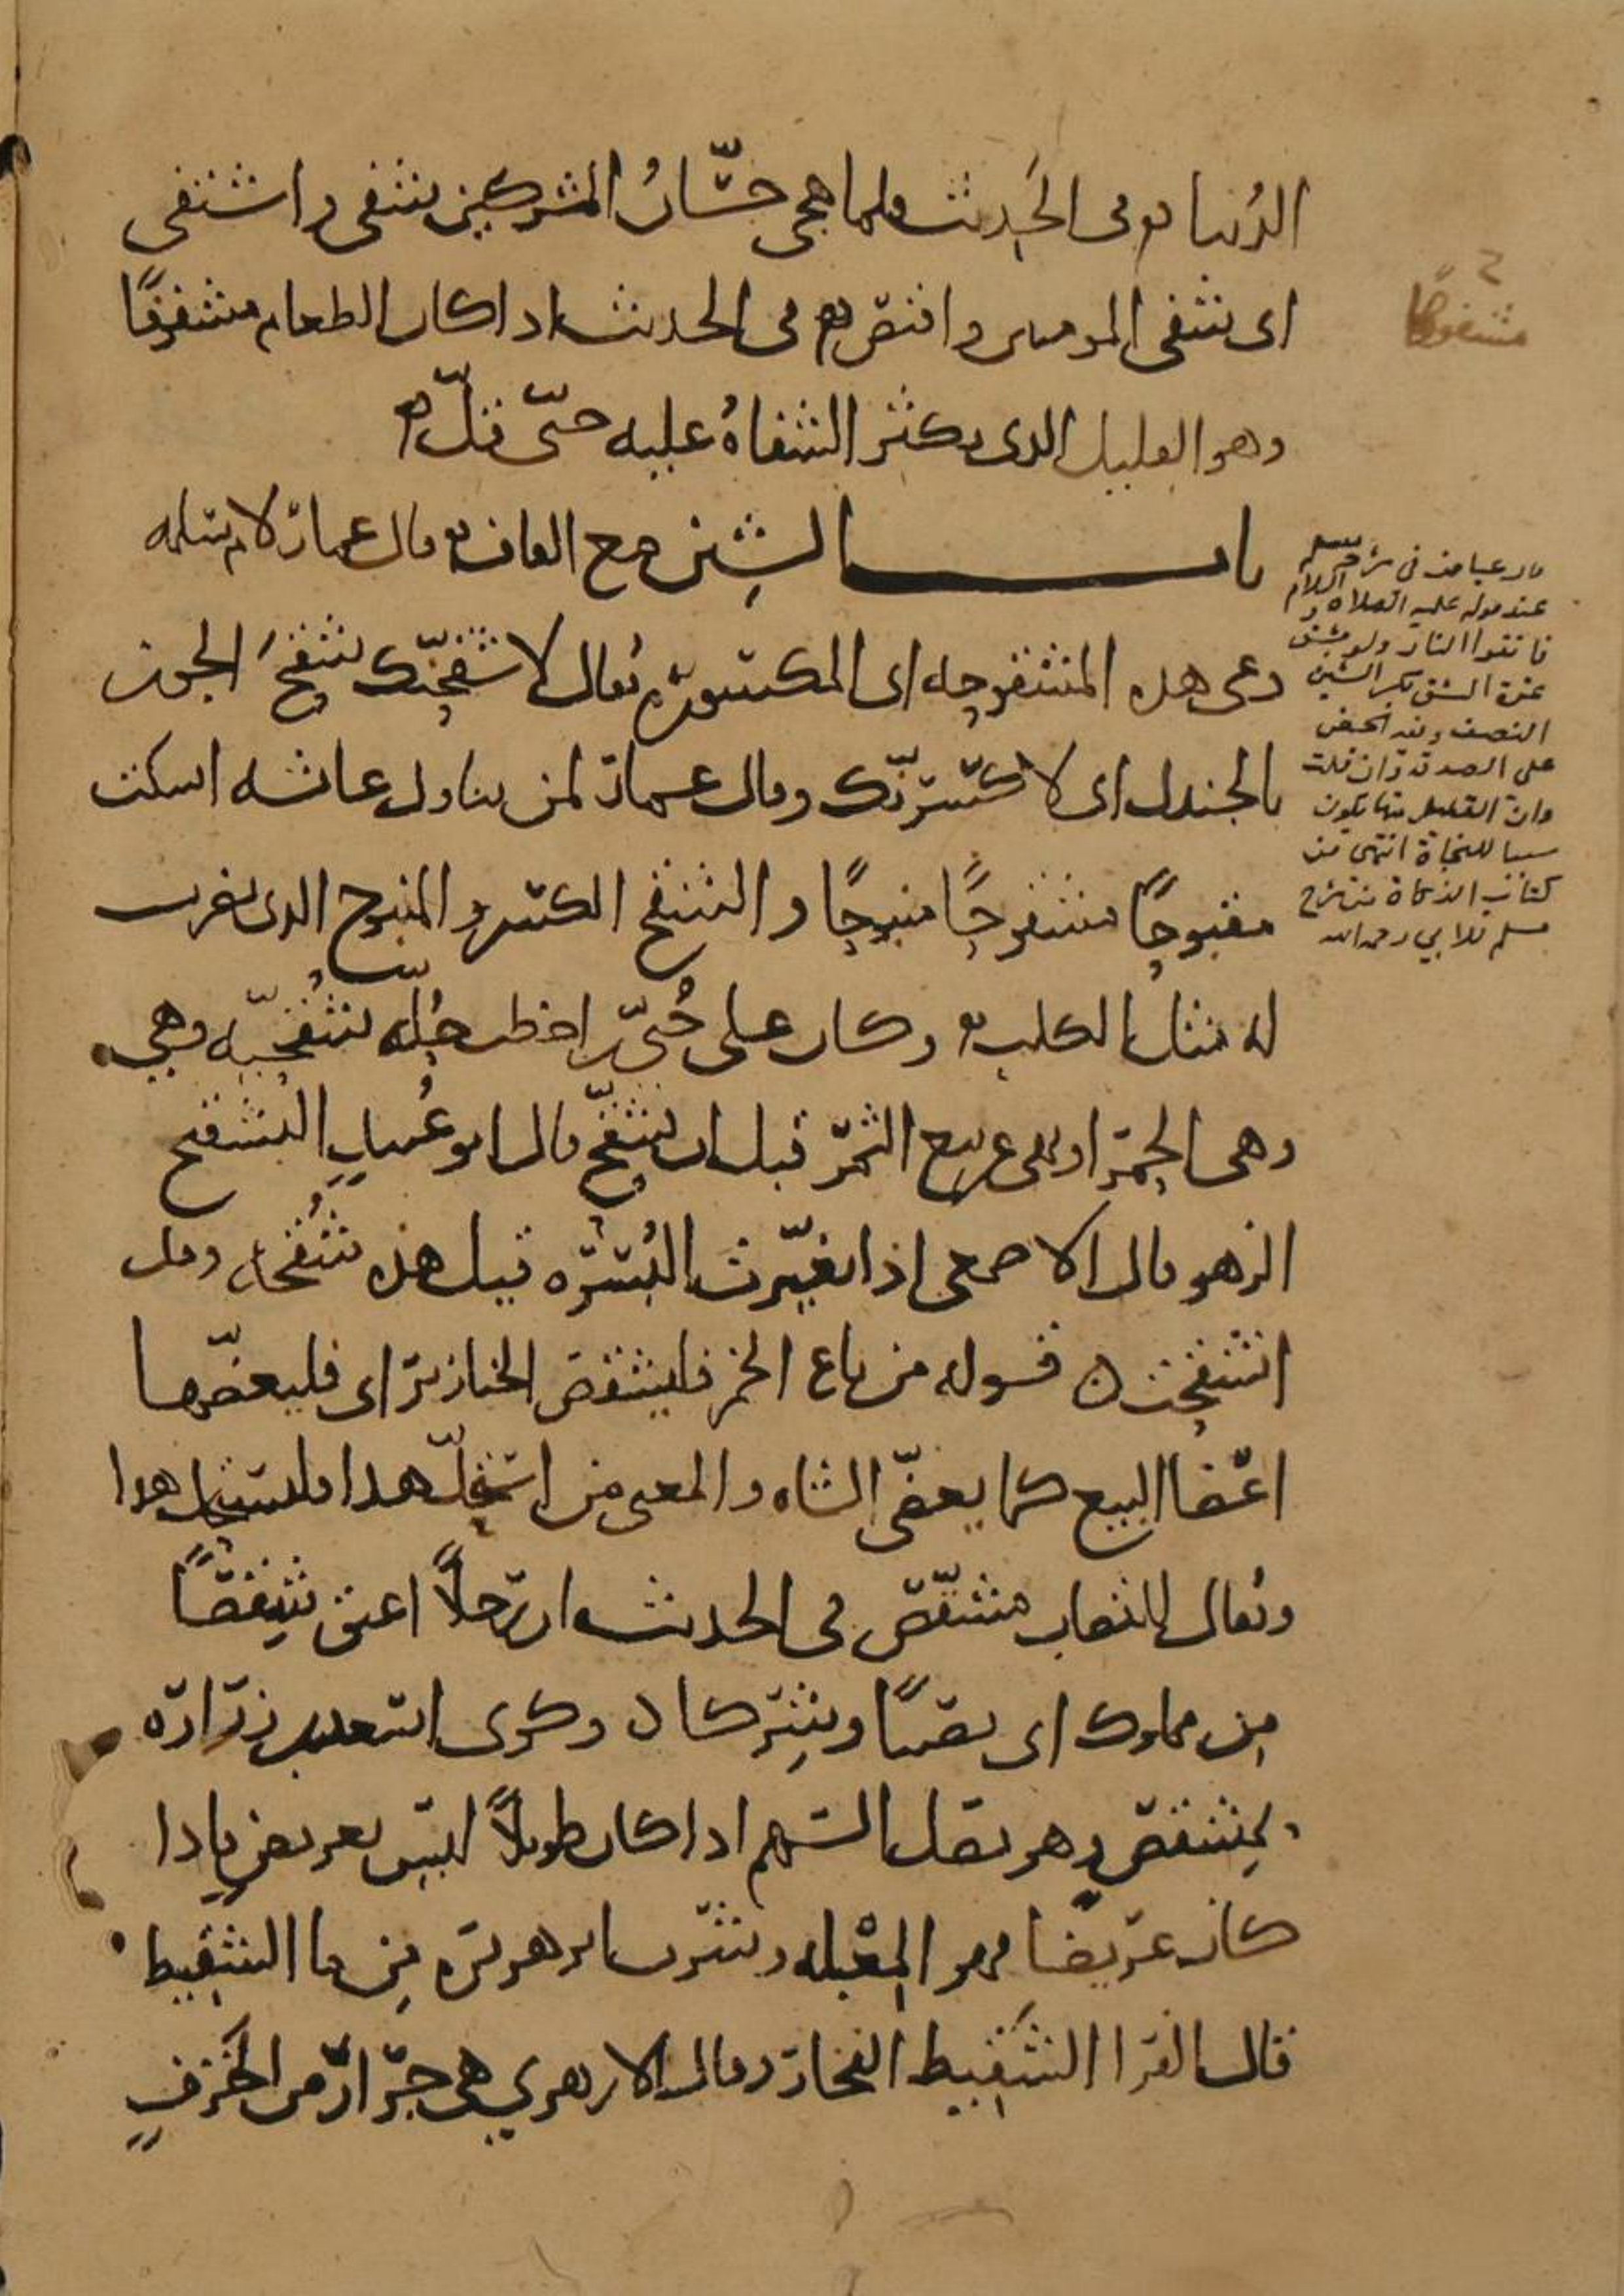 الدُنيا وفى الحَديث فلما هجى حسّانُ المشركين شفى واشتفى
اى شفى المومنين واختص هو فى الحديث اذا كان الطعام مشفوهًا
وهو القليل الذى يكثر الشفاهُ عليه حتى قلّ
باب الشين مع القاف قال عمار لام سلمه
دعى هذه المشقوحه اى المكسوره يُقال لاشقحنّك شقحَ الجوز
بالجندل اى لاكسّرنّك وقال عمار لمن يتناول عائشه اسكت
مقبوحًا مشقوحًا منبوحًا والشقح الكسر والمنبوح الذى يضرب
له مثل الكلب وكان على حُيىّ بن اخطب حُله شُقحيّه وهى
وهى الحمرا ونهى عن بيع الثمر قبل ان يُشقِّح قال ابو عُبيدٍ التشقيح
الزهو قال الاصمعى اذا تغيّرت البُسره قيل هذه شُقحه وقد
اشقحت ٥ قوله من باع الخمر فليشقص الخنازير اى فليعضّها
اعضا للبيع كما يعضّى الشاه والمعنى من استحلّ هذا فليستحل هذا
ويُقال للقصاب مشقّص فى الحديث ان رجلًا اعتق شِقصًا
مِن مملوك اى نصيبًا وشِركا ٥ وكوى اسعد بن زرارة
بمِشقص وهو نصل السهم اذا كان طويلًا ليس بعريض فاذا
كان عريضا فهو المِعْبله وشرب ابو هريره مِن ما الشقِيط
قال الفرا الشَقِيط الفخار وقال الازهري هى جرّارٌ من الخَزفِ
مشفوهًا
قال عياض فى شرح مسلم
عند قوله عليه الصلاة والسلام
فاتقوا النار ولو بشق
تمرة الشق بكسر الشين
النصف وفيه الحض
على الصدقة وان قلت
وان القليل منها يكون
سببا للنجاة انتهى من
كتاب الزكاة من شرح
مسلم للابي رحمه الله